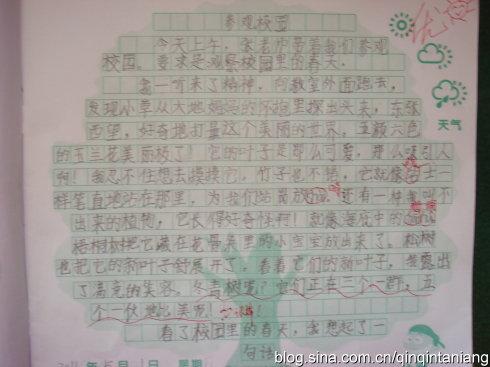 参观校园
今天上午，老师带着我们参观
校园。要求是观察校园里的春天。
我一听来了精神，向教室外面跑去，
发现小草从大地妈妈的怀抱里探出头来，东张
西望，好奇地打量这个美丽的世界，五颜六色
的玉兰花美丽极了！它的叶子是那么可爱，那么吸引人
啊！我忍不住想去摸摸它。竹子也不错，它就像士一
样笔直地站在那里，为我们站岗放。还有一种我叫不
出来的植物，它长得好奇怪啊！就像海底中的
梧桐树把它藏在花骨朵里的小宝宝放出来了。松树
也把它的新叶子舒展开了。看着它们的新叶子，我露出
了高兴的笑容。冬青树呢？它们正在三个一群，五
个一伙地比美呢！
看了校园里的春天，我想起了一
句诗
天气
年 5月 1日 星期
blog.sina.com.cn/qinqintaniang